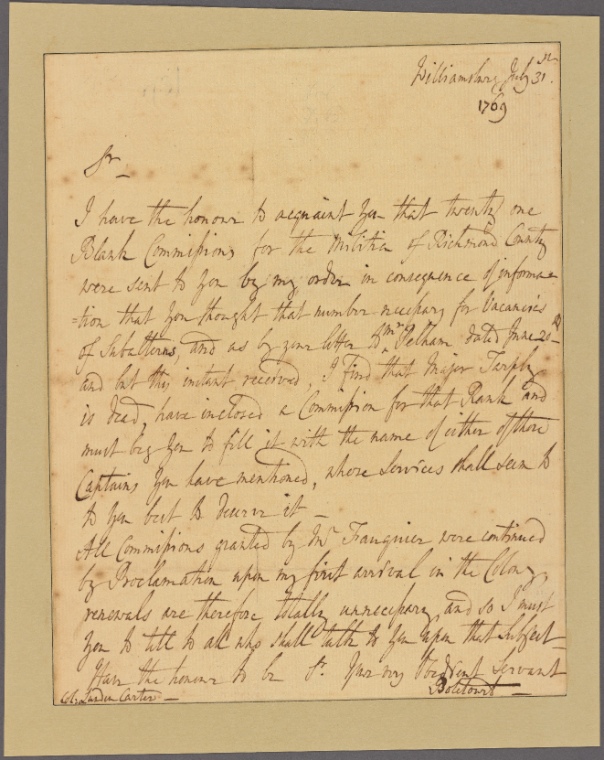 Williamsburg July 31st
1769
Sr
I have the honour to acquaint You that twenty one
Blank Commissions for the Militia of Richmond County
were sent to You by my order in consequence of informa=
=tion that You thought that number necessary for Vacancies
of Subalterns, and as by your letter to Mr Pelham dated June 20
and but this instant received, I find that Major Tarply
is dead, have inclosed a Commission for that Rank and
must beg You to fill it with the name of either of those
Captains You have mentioned, whose Services shall seem to
to You best to deserve it —
All Commissions granted by Mr Fauquier were continued
by Proclamation upon my first arrival in the Colony,
renewals are therefore totally unnecessary, and so I must
You to tell to all who shall talk to You upon that Subject —
Have the honour to be Sr. Your very Obedient Servant
Botetourt —
Col: Landon Carter —